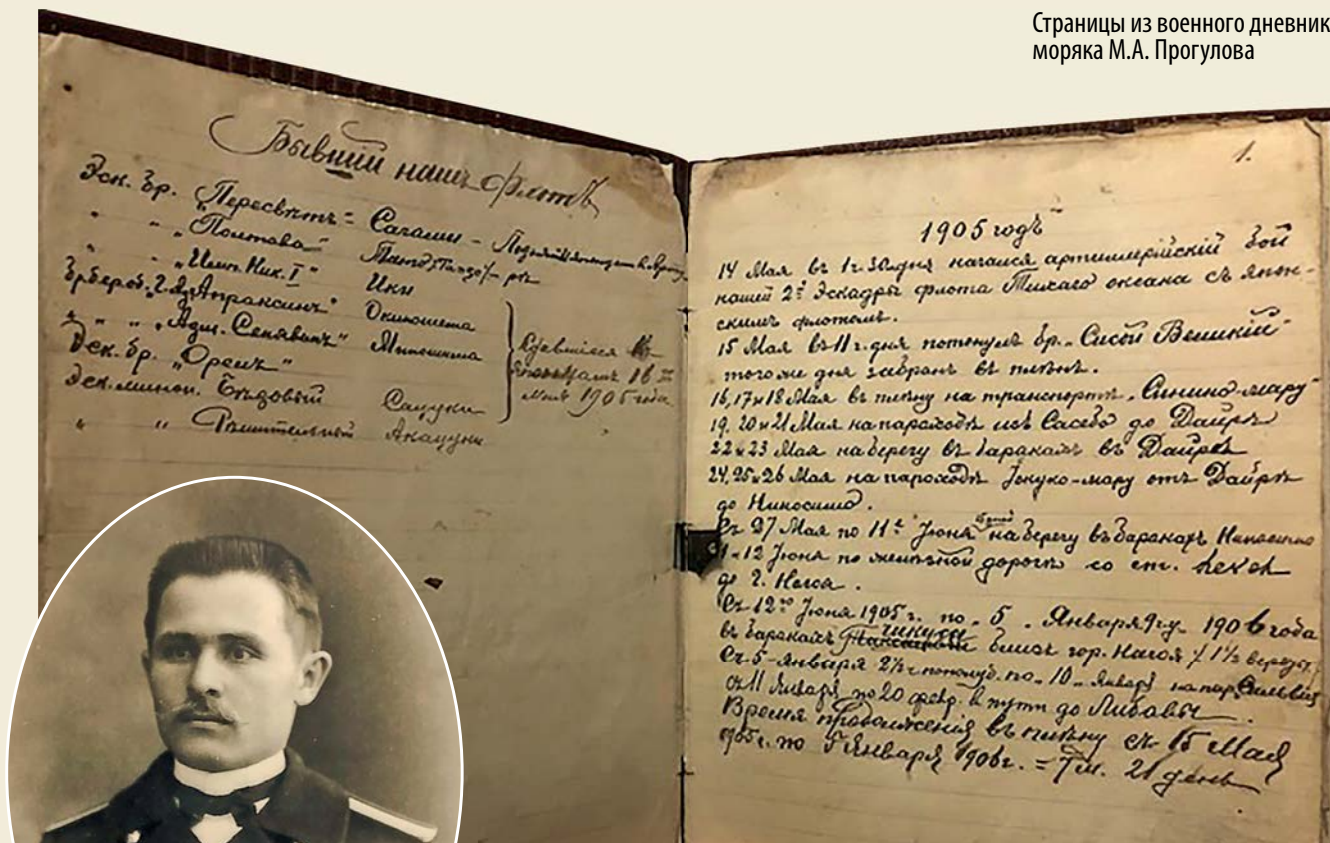 Страницы из военного дневник
моряка М.А. Прогулова
Бывший нашъ флотъ
Эск. бр. „Пересвѣтъ" = Сагами –
" " „Полтава" Танго /Танзо/ –
" " „Имп. Ник. I" Ики
Бр. берег. „Апраксинъ" Окиношима
" " " „Адм. Сенявинъ" Мишошима
Эск. бр. „Орелъ"
Эск. минон. Бѣдовый Сацуки
" " Рѣшительный Акацуки
Сдавшіеся
Японцамъ 15 го
Мая 1905 года
1.
1905 годъ
14 Мая въ 1 ч. 30. дня начался артиллерійскій бой
нашей 2й Эскадры флота Тихаго океана съ япон-
скимъ флотомъ.
15 Мая въ 11 ч. дня потонулъ бр. „Сисой Великій"
того же дня забранъ въ плѣнъ.
16, 17 и 18 Мая въ плѣну на транспортѣ „Синино-мару"
19, 20 и 21 Мая на пароходѣ изъ Сасебо до Дайри
22 и 23 Мая на берегу въ баракахъ въ Дайрѣ
24, 25 и 26 Мая на пароходѣ -мару отъ Дайри
до Ниносима.
Съ 27 Мая по 11е Іюня на берегу въ баракахъ Ниносима
11-12 Іюня по желѣзной дорогѣ со ст.
до г. Нагоя.
Съ 12го Іюня 1905 г. по „5" Января 1906 года
въ баракахъ близъ гор. Нагоя / 1½ версты /
Съ 5 – января 2½ ч. пополуд. по „10" Января на пар.
съ 11 Января по 20 февр. в пути до Либавы.
Время продолженія въ плѣну съ 15 Мая
1905 г. по 5 Января 1906 г. = 7 м. 21 день